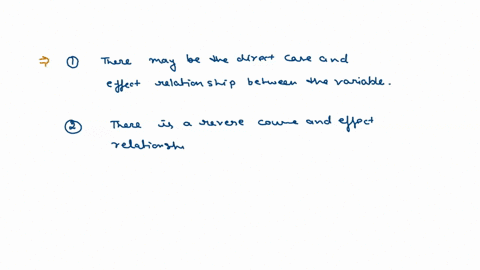 ⇒ ① There may be the direct case and
effect relationship between the variable.
② There is a revere coume and effect
relationshi